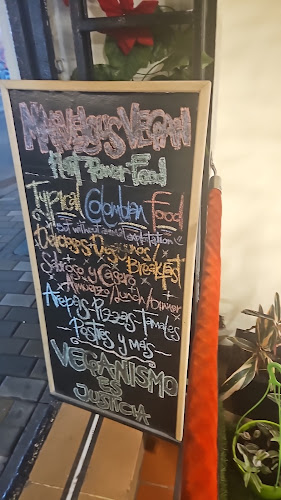 Marvelous Vegan
Plant Power Food
Typical Colombian Food
But without animal exploitation
Deliciosos Desayunos
Breakfast
Sabroso y Casero
Almuerzo/Lunch/Dinner
Arepas-Pizzas-Tamales
Postres y más
VEGANISMO
ES
JUSTICIA